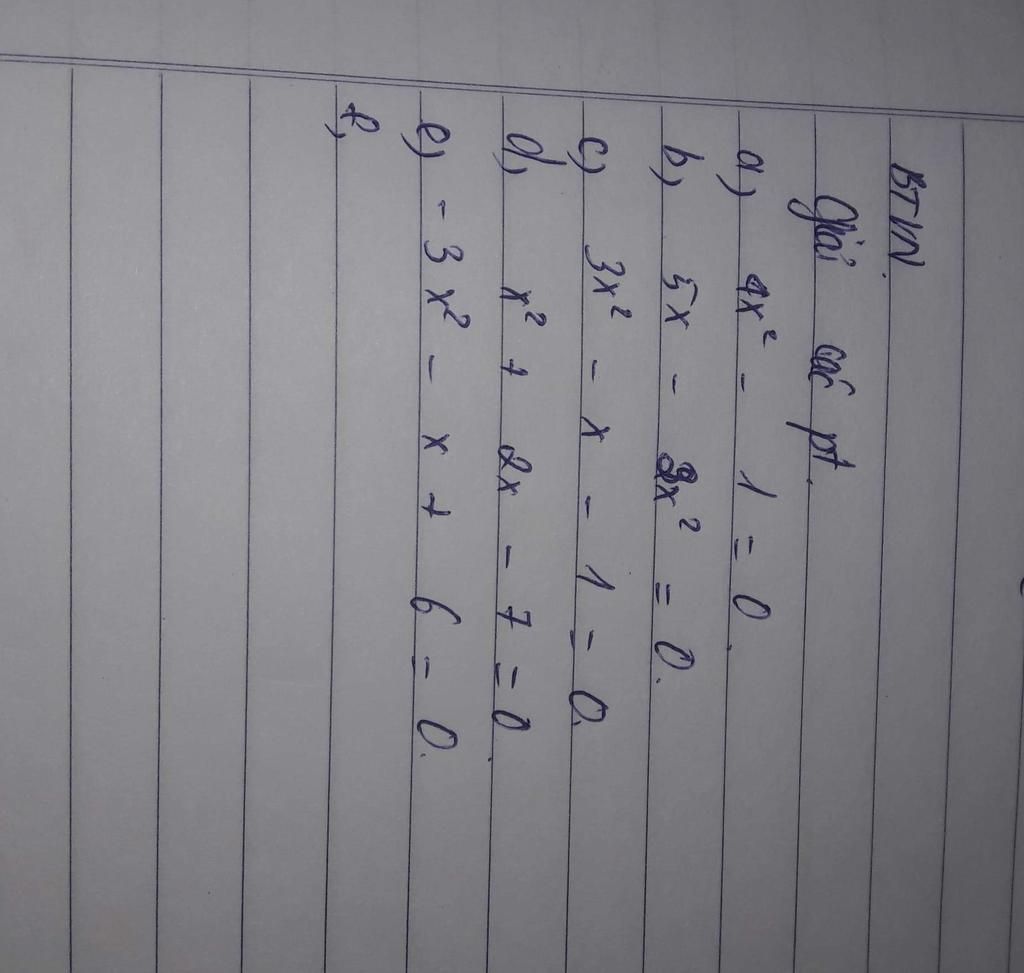 BTVN.
Giải các pt.
a) 4x² - 1 = 0.
b) 5x - 3x² = 0.
c) 3x² - x - 1 = 0.
d) x² + 2x - 7 = 0.
e) - 3x² - x + 6 = 0.
f)